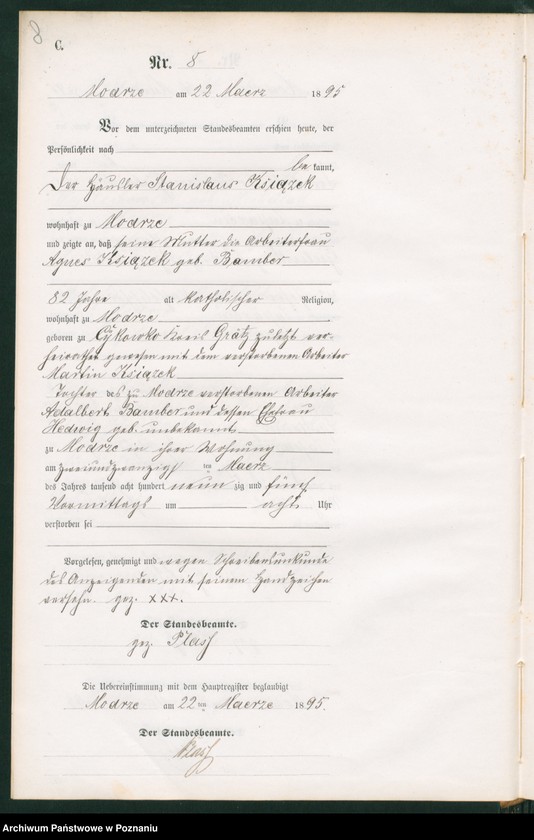 8
C.
Nr. 8
Modrze am 22 Maerz 1895
Vor dem unterzeichneten Standesbeamten erschien heute, der
Persönlichkeit nach
be kannt,
Der Häusler Stanislaus Książek
wohnhaft zu Modrze
und zeigte an, daß seine Mutter die Arbeiterfrau
Agnes Książek geb. Bamber
82 Jahre alt katholischer Religion,
wohnhaft zu Modrze
geboren zu Cykowko Kreis Grätz zuletzt ver-
heirathet gewesen mit dem verstorbenen Arbeiter
Martin Książek
Tochter des zu Modrze verstorbenen Arbeiter
Adalbert Bamber und dessen Ehefrau
Hedwig geb. unbekannt
zu Modrze in ihrer Wohnung
am zweiundzwanzigsten Maerz
des Jahres tausend acht hundert neun zig und fünf
Vormittags um acht Uhr
verstorben sei
Vorgelesen, genehmigt und wegen Schreibensunkunde
des Anzeigenden mit seinem Handzeichen
versehn. gez. xxx.
Der Standesbeamte.
gez.
Die Uebereinstimmung mit dem Hauptregister beglaubigt
Modrze am 22ten Maerz 1895.
Der Standesbeamte.
Archiwum Państwowe w Poznaniu